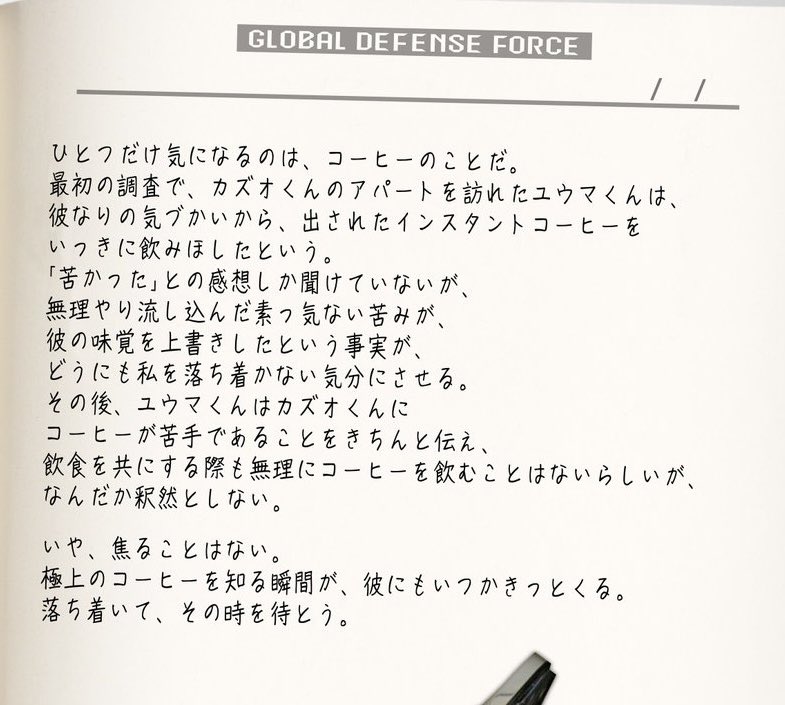 GLOBAL DEFENSE FORCE
/ /
ひとつだけ気になるのは、コーヒーのことだ。
最初の調査で、カズオくんのアパートを訪れたユウマくんは、
彼なりの気づかいから、出されたインスタントコーヒーを
いっきに飲みほしたという。
「苦かった」との感想しか聞けていないが、
無理やり流し込んだ素っ気ない苦みが、
彼の味覚を上書きしたという事実が、
どうにも私を落ち着かない気分にさせる。
その後、ユウマくんはカズオくんに
コーヒーが苦手であることをきちんと伝え、
飲食を共にする際も無理にコーヒーを飲むことはないらしいが、
なんだか釈然としない。
いや、焦ることはない。
極上のコーヒーを知る瞬間が、彼にもいつかきっとくる。
落ち着いて、その時を待とう。